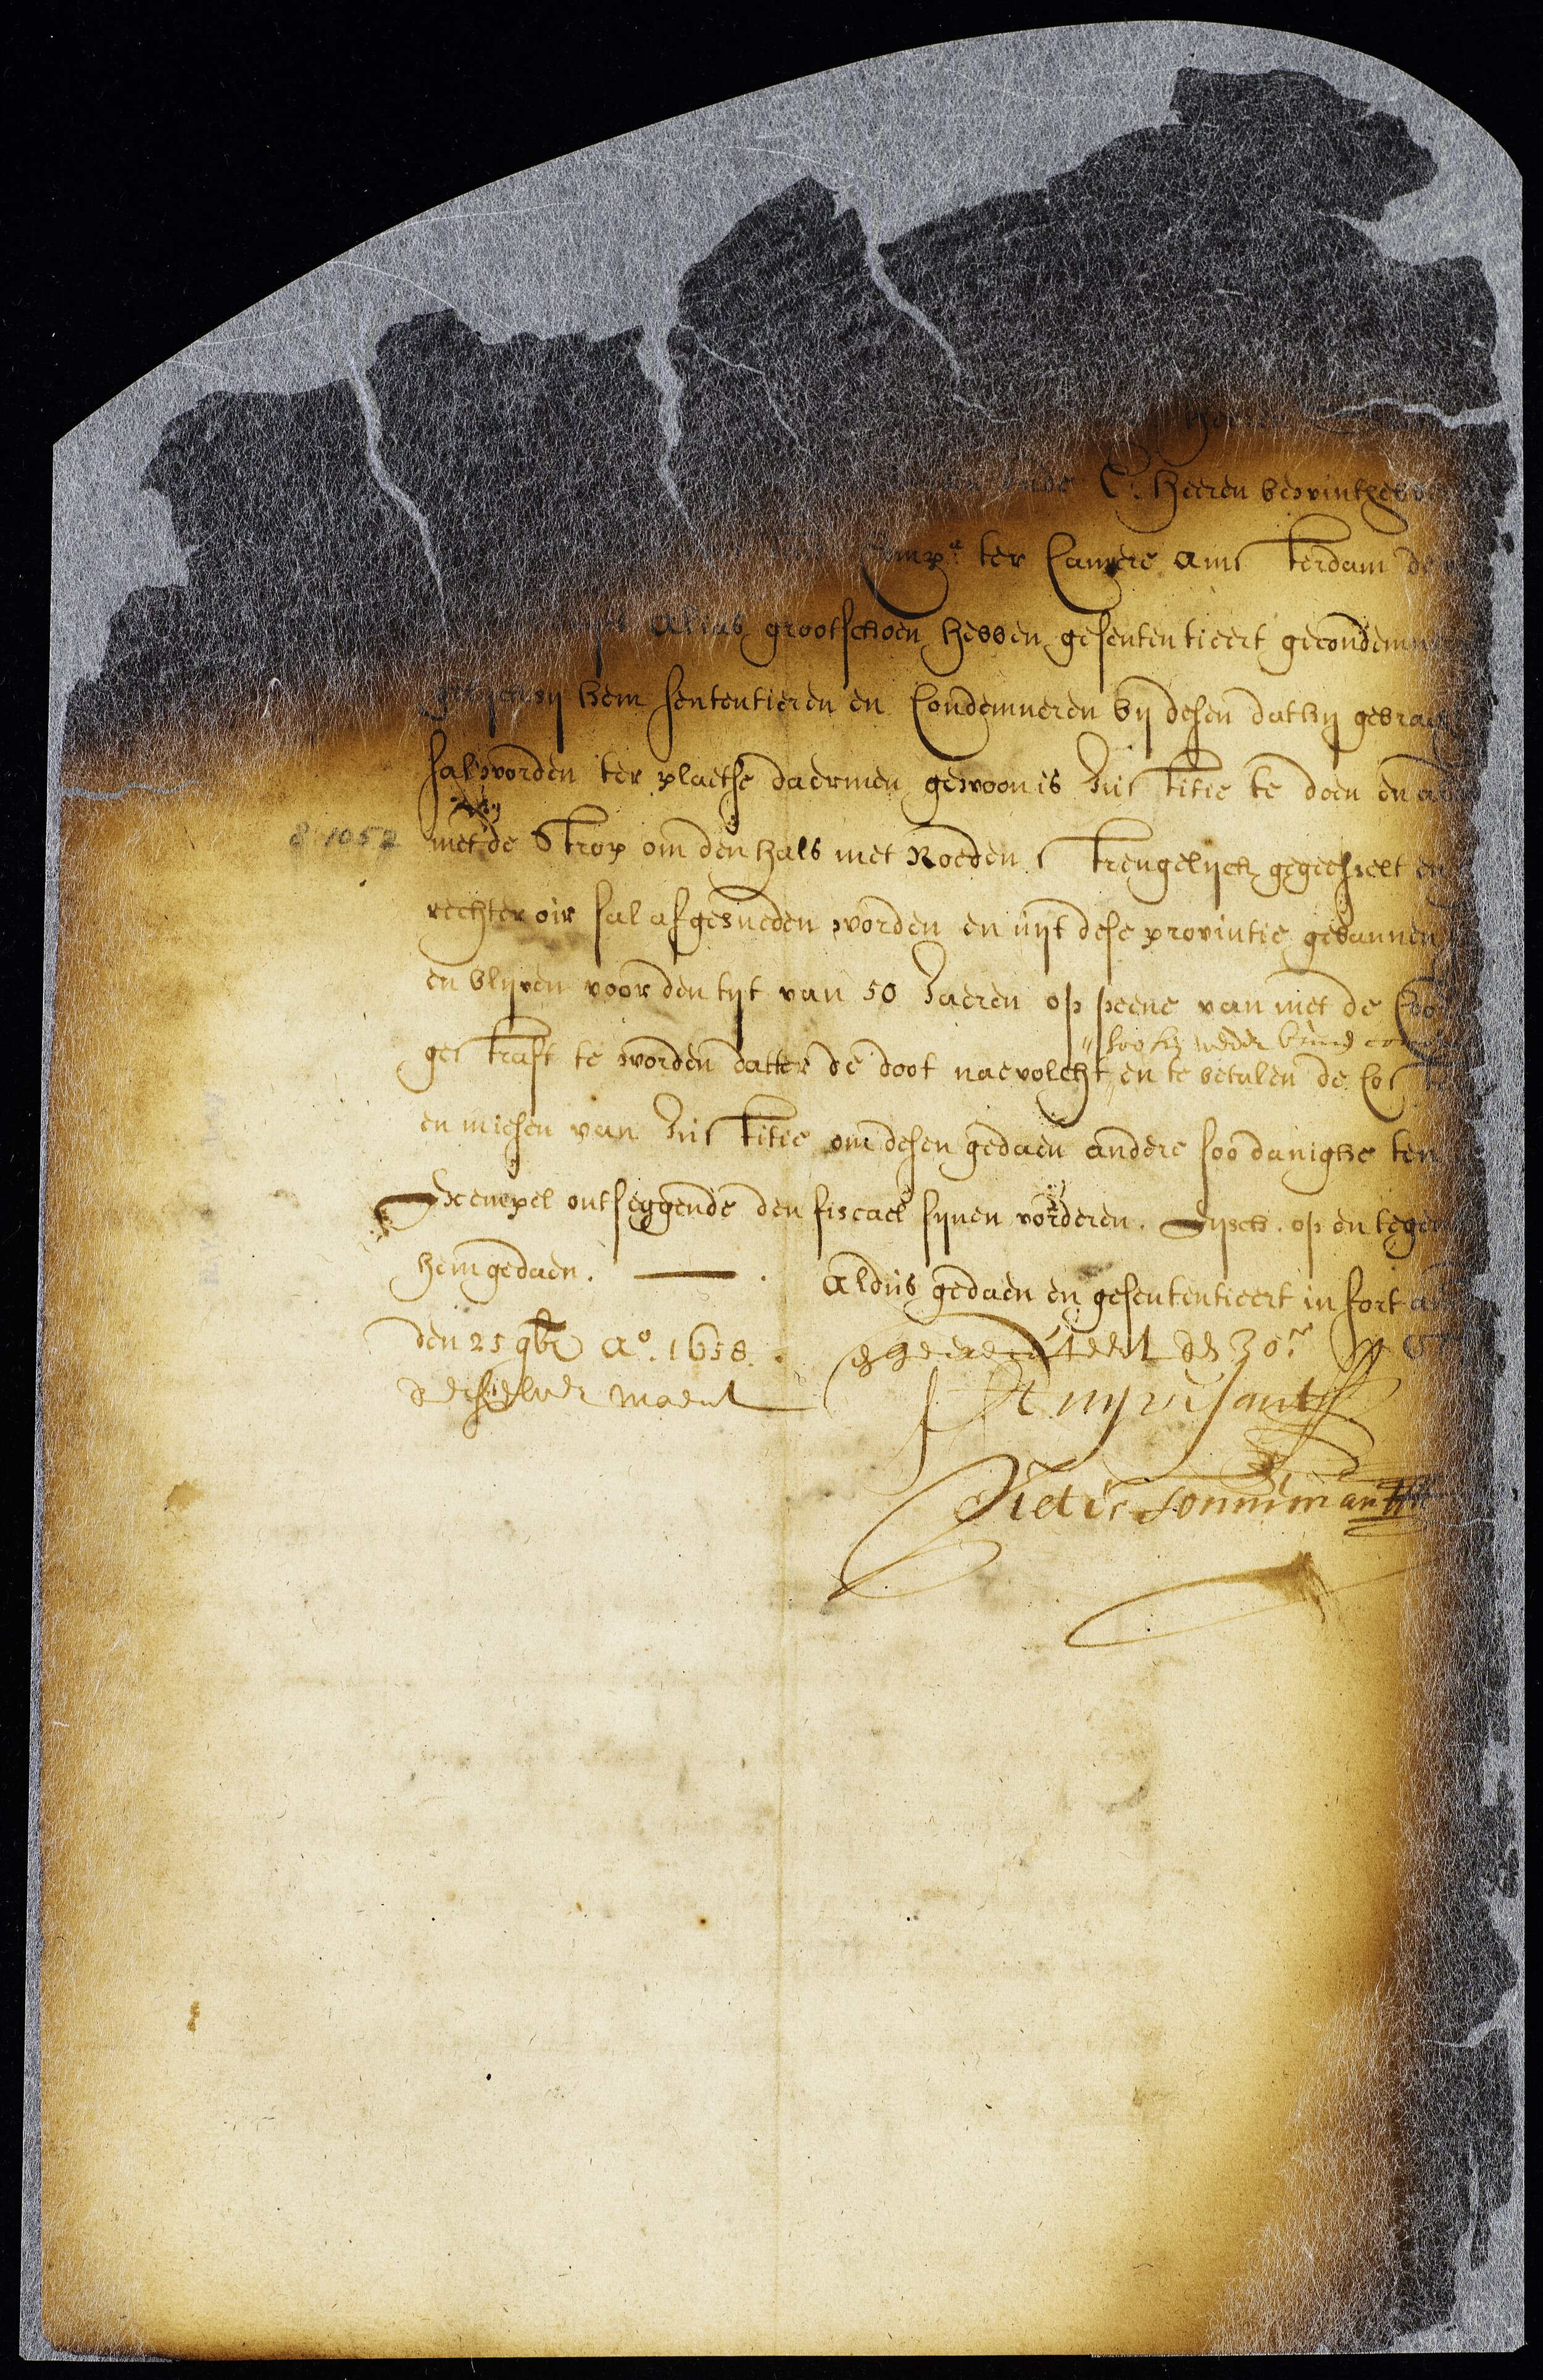 heeren
ende E: Heeren bewinthebb
Comp:ª ter Camere Amsterdam de
alias grootschoen hebben gesententieert gecondemn
hem sententieren en Condemneren bij desen dathij gebrac
sal worden ter plaetse daermen gewoon is Justitie te doen en a
met de Strop om den hals met Roeden strengelijck gegeesselt en
rechter oir sal afgesneden worden en uijt dese provintie gebannen
en blijven voor den tijt van 50 Jaeren op peene van met de
soo hij weder
gestraft te worden datter de doot naevolcht, en te betalen de Cos
en misen van Justitie om desen gedaen andere soodanighe ten
Exempel ontseggende den fiscael sijnen vorderen. Eijsch. op en tegen
hem gedaen. Aldus gedaen en gesententieert in fort am
den 25 9br Aº. 1658. den 30:
derselver maent
P Stuyvesant
Pieter Tonneman
8 1052